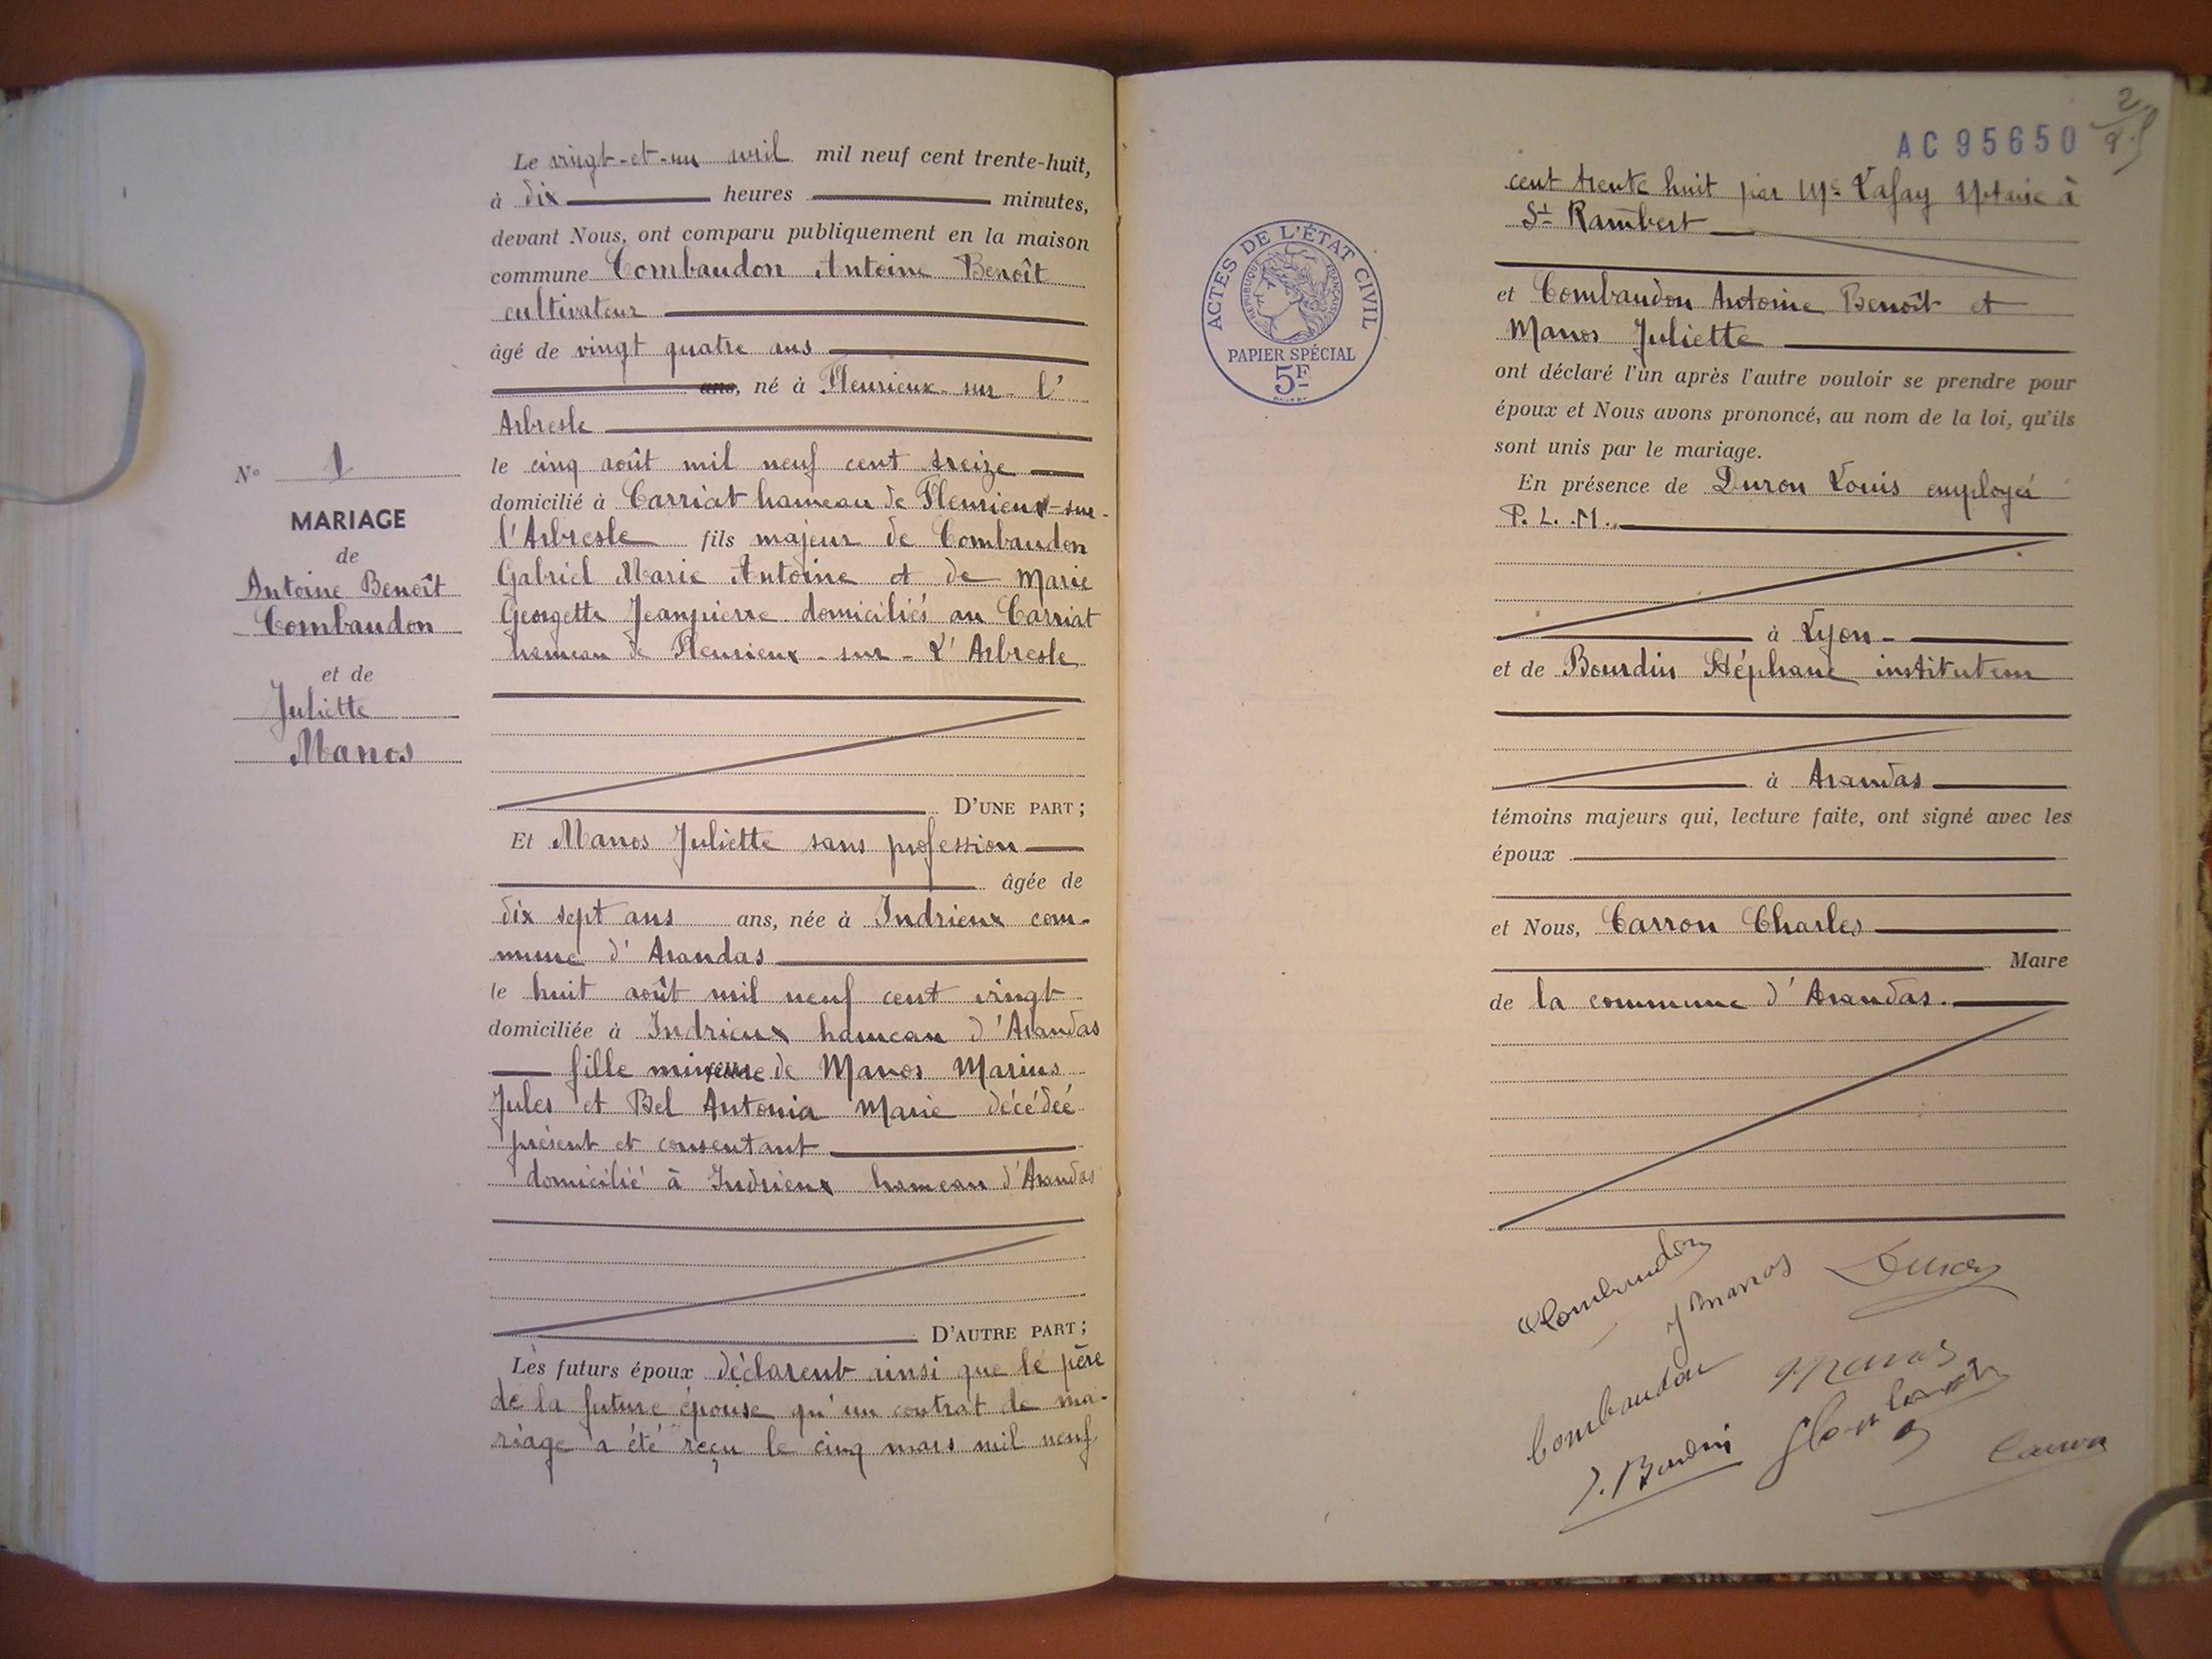 Le vingt-et-un avril mil neuf cent trente-huit,
à dix heures minutes,
devant Nous, ont comparu publiquement en la maison
commune Combaudon Antoine Benoît
cultivateur
âgé de vingt quatre ans
ans, né à Fleurieux-sur-l'
Arbresle
le cinq août mil neuf cent treize
domicilié à Carriat hameau de Fleurieux-sur-
l'Arbresle fils majeur de Combaudon
Gabriel Marie Antoine et de Marie
Georgette Jeanpierre domiciliés au Carriat
hameau de Fleurieux-sur-L'Arbresle
N° 1
MARIAGE
de
Antoine Benoît
Combaudon
et de
Juliette
Manos
D'UNE PART;
Et Manos Juliette sans profession
âgée de
dix sept ans ans, née à Indrieux com-
mune d'Arandas
le huit août mil neuf cent vingt
domiciliée à Indrieux hameau d'Arandas
fille mineure de Manos Marius
Jules et Bel Antonia Marie décédée
présent et consentant
domicilié à Indrieux hameau d'Arandas
D'AUTRE PART;
Les futurs époux déclarent ainsi que le père
de la future épouse qu'un contrat de ma-
riage a été reçu le cinq mars mil neuf
AC 95650
2
ACTES DE L'ÉTAT CIVIL
RÉPUBLIQUE FRANÇAISE
PAPIER SPÉCIAL
5F
cent trente huit par Me Lafay Notaire à
St Rambert
et Combaudon Antoine Benoît et
Manos Juliette
ont déclaré l'un après l'autre vouloir se prendre pour
époux et Nous avons prononcé, au nom de la loi, qu'ils
sont unis par le mariage.
En présence de Duron Louis employé
P. L. M.
à Lyon
et de Bourdin Stéphane instituteur
à Arandas
témoins majeurs qui, lecture faite, ont signé avec les
époux
et Nous, Carron Charles
Maire
de la commune d'Arandas.
Combaudon
J Manos
Duron
Combaudon
Manos
S. Bourdin
Carron